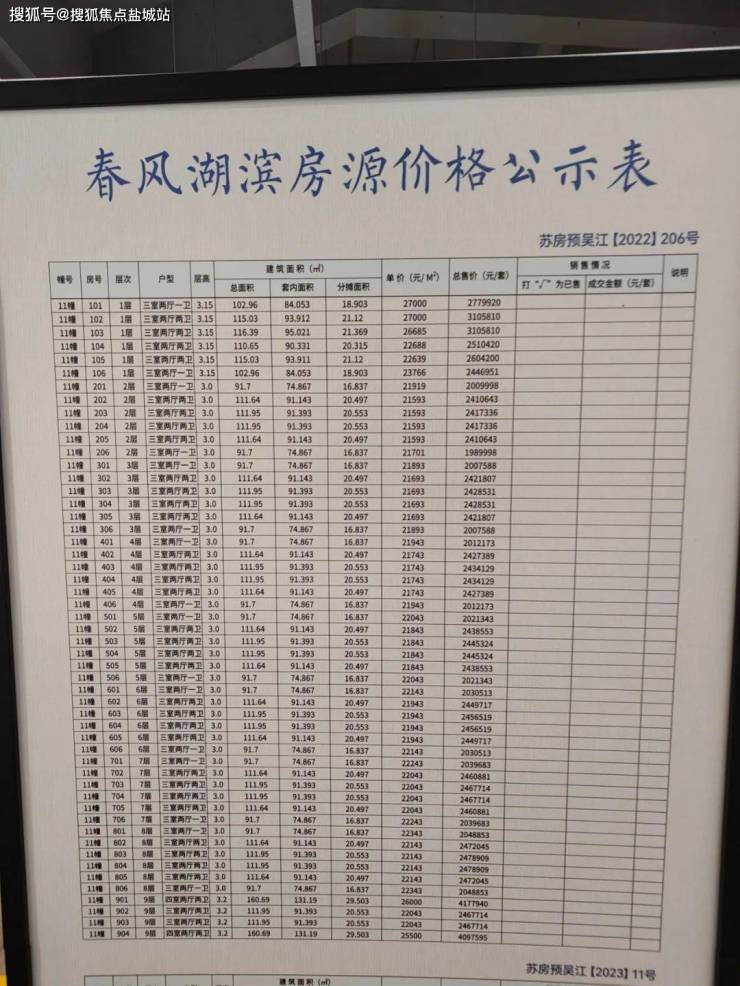 搜狐号@搜狐焦点盐城站
春风湖滨房源价格公示表
苏房预吴江【2022】206号
幢号 房号 层次 户型 层高 建筑面积（㎡） 单价（元/M²） 总售价（元/套） 销售情况 说明
总面积 套内面积 分摊面积 打“√”为已售 成交金额（元/套）
11幢 101 1层 三室两厅一卫 3.15 102.96 84.053 18.903 27000 2779920
11幢 102 1层 三室两厅两卫 3.15 115.03 93.912 21.12 27000 3105810
11幢 103 1层 三室两厅两卫 3.15 116.39 95.021 21.369 26685 3105810
11幢 104 1层 三室两厅两卫 3.15 110.65 90.331 20.315 22688 2510420
11幢 105 1层 三室两厅两卫 3.15 115.03 93.911 21.12 22639 2604200
11幢 106 1层 三室两厅一卫 3.15 102.96 84.053 18.903 23766 2446951
11幢 201 2层 三室两厅一卫 3.0 91.7 74.867 16.837 21919 2009998
11幢 202 2层 三室两厅两卫 3.0 111.64 91.143 20.497 21593 2410643
11幢 203 2层 三室两厅两卫 3.0 111.95 91.393 20.553 21593 2417336
11幢 204 2层 三室两厅两卫 3.0 111.95 91.393 20.553 21593 2417336
11幢 205 2层 三室两厅两卫 3.0 111.64 91.143 20.497 21593 2410643
11幢 206 2层 三室两厅一卫 3.0 91.7 74.867 16.837 21701 1989998
11幢 301 3层 三室两厅一卫 3.0 91.7 74.867 16.837 21893 2007588
11幢 302 3层 三室两厅两卫 3.0 111.64 91.143 20.497 21693 2421807
11幢 303 3层 三室两厅两卫 3.0 111.95 91.393 20.553 21693 2428531
11幢 304 3层 三室两厅两卫 3.0 111.95 91.393 20.553 21693 2428531
11幢 305 3层 三室两厅两卫 3.0 111.64 91.143 20.497 21693 2421807
11幢 306 3层 三室两厅一卫 3.0 91.7 74.867 16.837 21893 2007588
11幢 401 4层 三室两厅一卫 3.0 91.7 74.867 16.837 21943 2012173
11幢 402 4层 三室两厅两卫 3.0 111.64 91.143 20.497 21743 2427389
11幢 403 4层 三室两厅两卫 3.0 111.95 91.393 20.553 21743 2434129
11幢 404 4层 三室两厅两卫 3.0 111.95 91.393 20.553 21743 2434129
11幢 405 4层 三室两厅两卫 3.0 111.64 91.143 20.497 21743 2427389
11幢 406 4层 三室两厅一卫 3.0 91.7 74.867 16.837 21943 2012173
11幢 501 5层 三室两厅一卫 3.0 91.7 74.867 16.837 22043 2021343
11幢 502 5层 三室两厅两卫 3.0 111.64 91.143 20.497 21843 2438553
11幢 503 5层 三室两厅两卫 3.0 111.95 91.393 20.553 21843 2445324
11幢 504 5层 三室两厅两卫 3.0 111.95 91.393 20.553 21843 2445324
11幢 505 5层 三室两厅两卫 3.0 111.64 91.143 20.497 21843 2438553
11幢 506 5层 三室两厅一卫 3.0 91.7 74.867 16.837 22043 2021343
11幢 601 6层 三室两厅一卫 3.0 91.7 74.867 16.837 22143 2030513
11幢 602 6层 三室两厅两卫 3.0 111.64 91.143 20.497 21943 2449717
11幢 603 6层 三室两厅两卫 3.0 111.95 91.393 20.553 21943 2456519
11幢 604 6层 三室两厅两卫 3.0 111.95 91.393 20.553 21943 2456519
11幢 605 6层 三室两厅两卫 3.0 111.64 91.143 20.497 21943 2449717
11幢 606 6层 三室两厅一卫 3.0 91.7 74.867 16.837 22143 2030513
11幢 701 7层 三室两厅一卫 3.0 91.7 74.867 16.837 22243 2039683
11幢 702 7层 三室两厅两卫 3.0 111.64 91.143 20.497 22043 2460881
11幢 703 7层 三室两厅两卫 3.0 111.95 91.393 20.553 22043 2467714
11幢 704 7层 三室两厅两卫 3.0 111.95 91.393 20.553 22043 2467714
11幢 705 7层 三室两厅两卫 3.0 111.64 91.143 20.497 22043 2460881
11幢 706 7层 三室两厅一卫 3.0 91.7 74.867 16.837 22243 2039683
11幢 801 8层 三室两厅一卫 3.0 91.7 74.867 16.837 22343 2048853
11幢 802 8层 三室两厅两卫 3.0 111.64 91.143 20.497 22143 2472045
11幢 803 8层 三室两厅两卫 3.0 111.95 91.393 20.553 22143 2478909
11幢 804 8层 三室两厅两卫 3.0 111.95 91.393 20.553 22143 2478909
11幢 805 8层 三室两厅两卫 3.0 111.64 91.143 20.497 22143 2472045
11幢 806 8层 三室两厅一卫 3.0 91.7 74.867 16.837 22343 2048853
11幢 901 9层 四室两厅两卫 3.2 160.69 131.19 29.503 26000 4177940
11幢 902 9层 三室两厅两卫 3.2 111.95 91.393 20.553 22043 2467714
11幢 903 9层 三室两厅两卫 3.2 111.95 91.393 20.553 22043 2467714
11幢 904 9层 四室两厅两卫 3.2 160.69 131.19 29.503 25500 4097595
苏房预吴江【2023】11号
建筑面积（㎡）